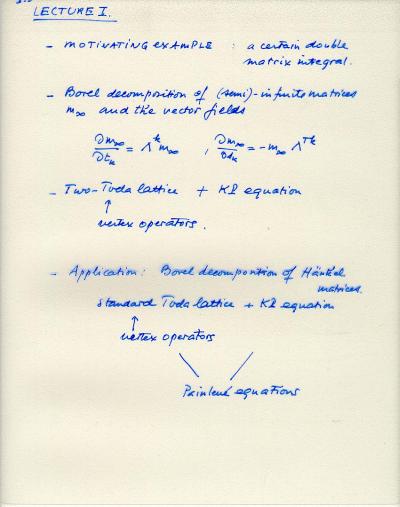 LECTURE I.
- MOTIVATING EXAMPLE : a certain double
matrix integral.
- Borel decomposition of (semi)-infinite matrices
m∞ and the vector fields
∂m∞/∂tₖ = Λᵏ m∞ , ∂m∞/∂sₖ = -m∞ Λᵀᵏ
- Two-Toda lattice +
↑
vertex operators.
- Application: Borel decomposition of Hänkel
matrices.
standard Toda lattice +
↑
vertex operators
Painlevé equations